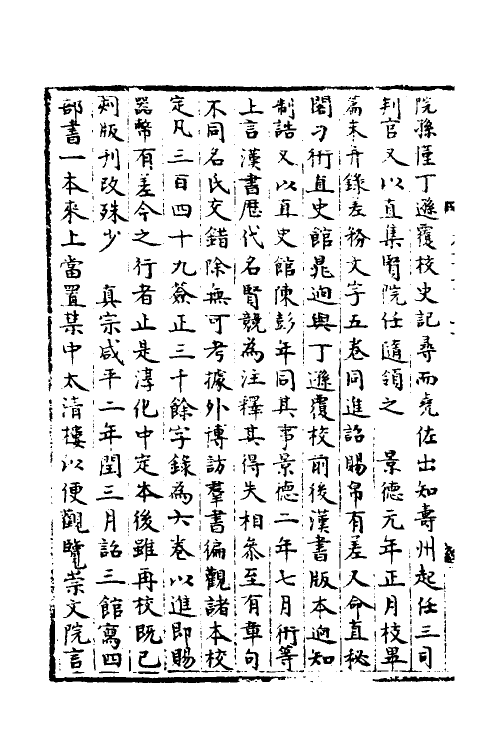 院孫僅丁遜覆校史記尋而堯佐出知壽州起任三司
判官又以直集賢院任隨領之　景德元年正月校畢
篇末并錄差務文字五卷同進詔賜帛有差又命直秘
閣刁衎直史館晁迥與丁遜覆校前後漢書版本迥知
制誥又以直史館陳彭年同其事景德二年七月衎等
上言漢書歷代名賢競為注釋其得失相叅至有章句
不同名氏交錯除無可考據外博訪羣書徧觀諸本校
定凡三百四十九簽正三千餘字錄為六卷以進即賜
器幣有差今之行者止是淳化中定本後雖再校既已
刻版刊改殊少　真宗咸平二年閏三月詔三館寫四
部書一本來上當置禁中太清樓以便觀覽崇文院言